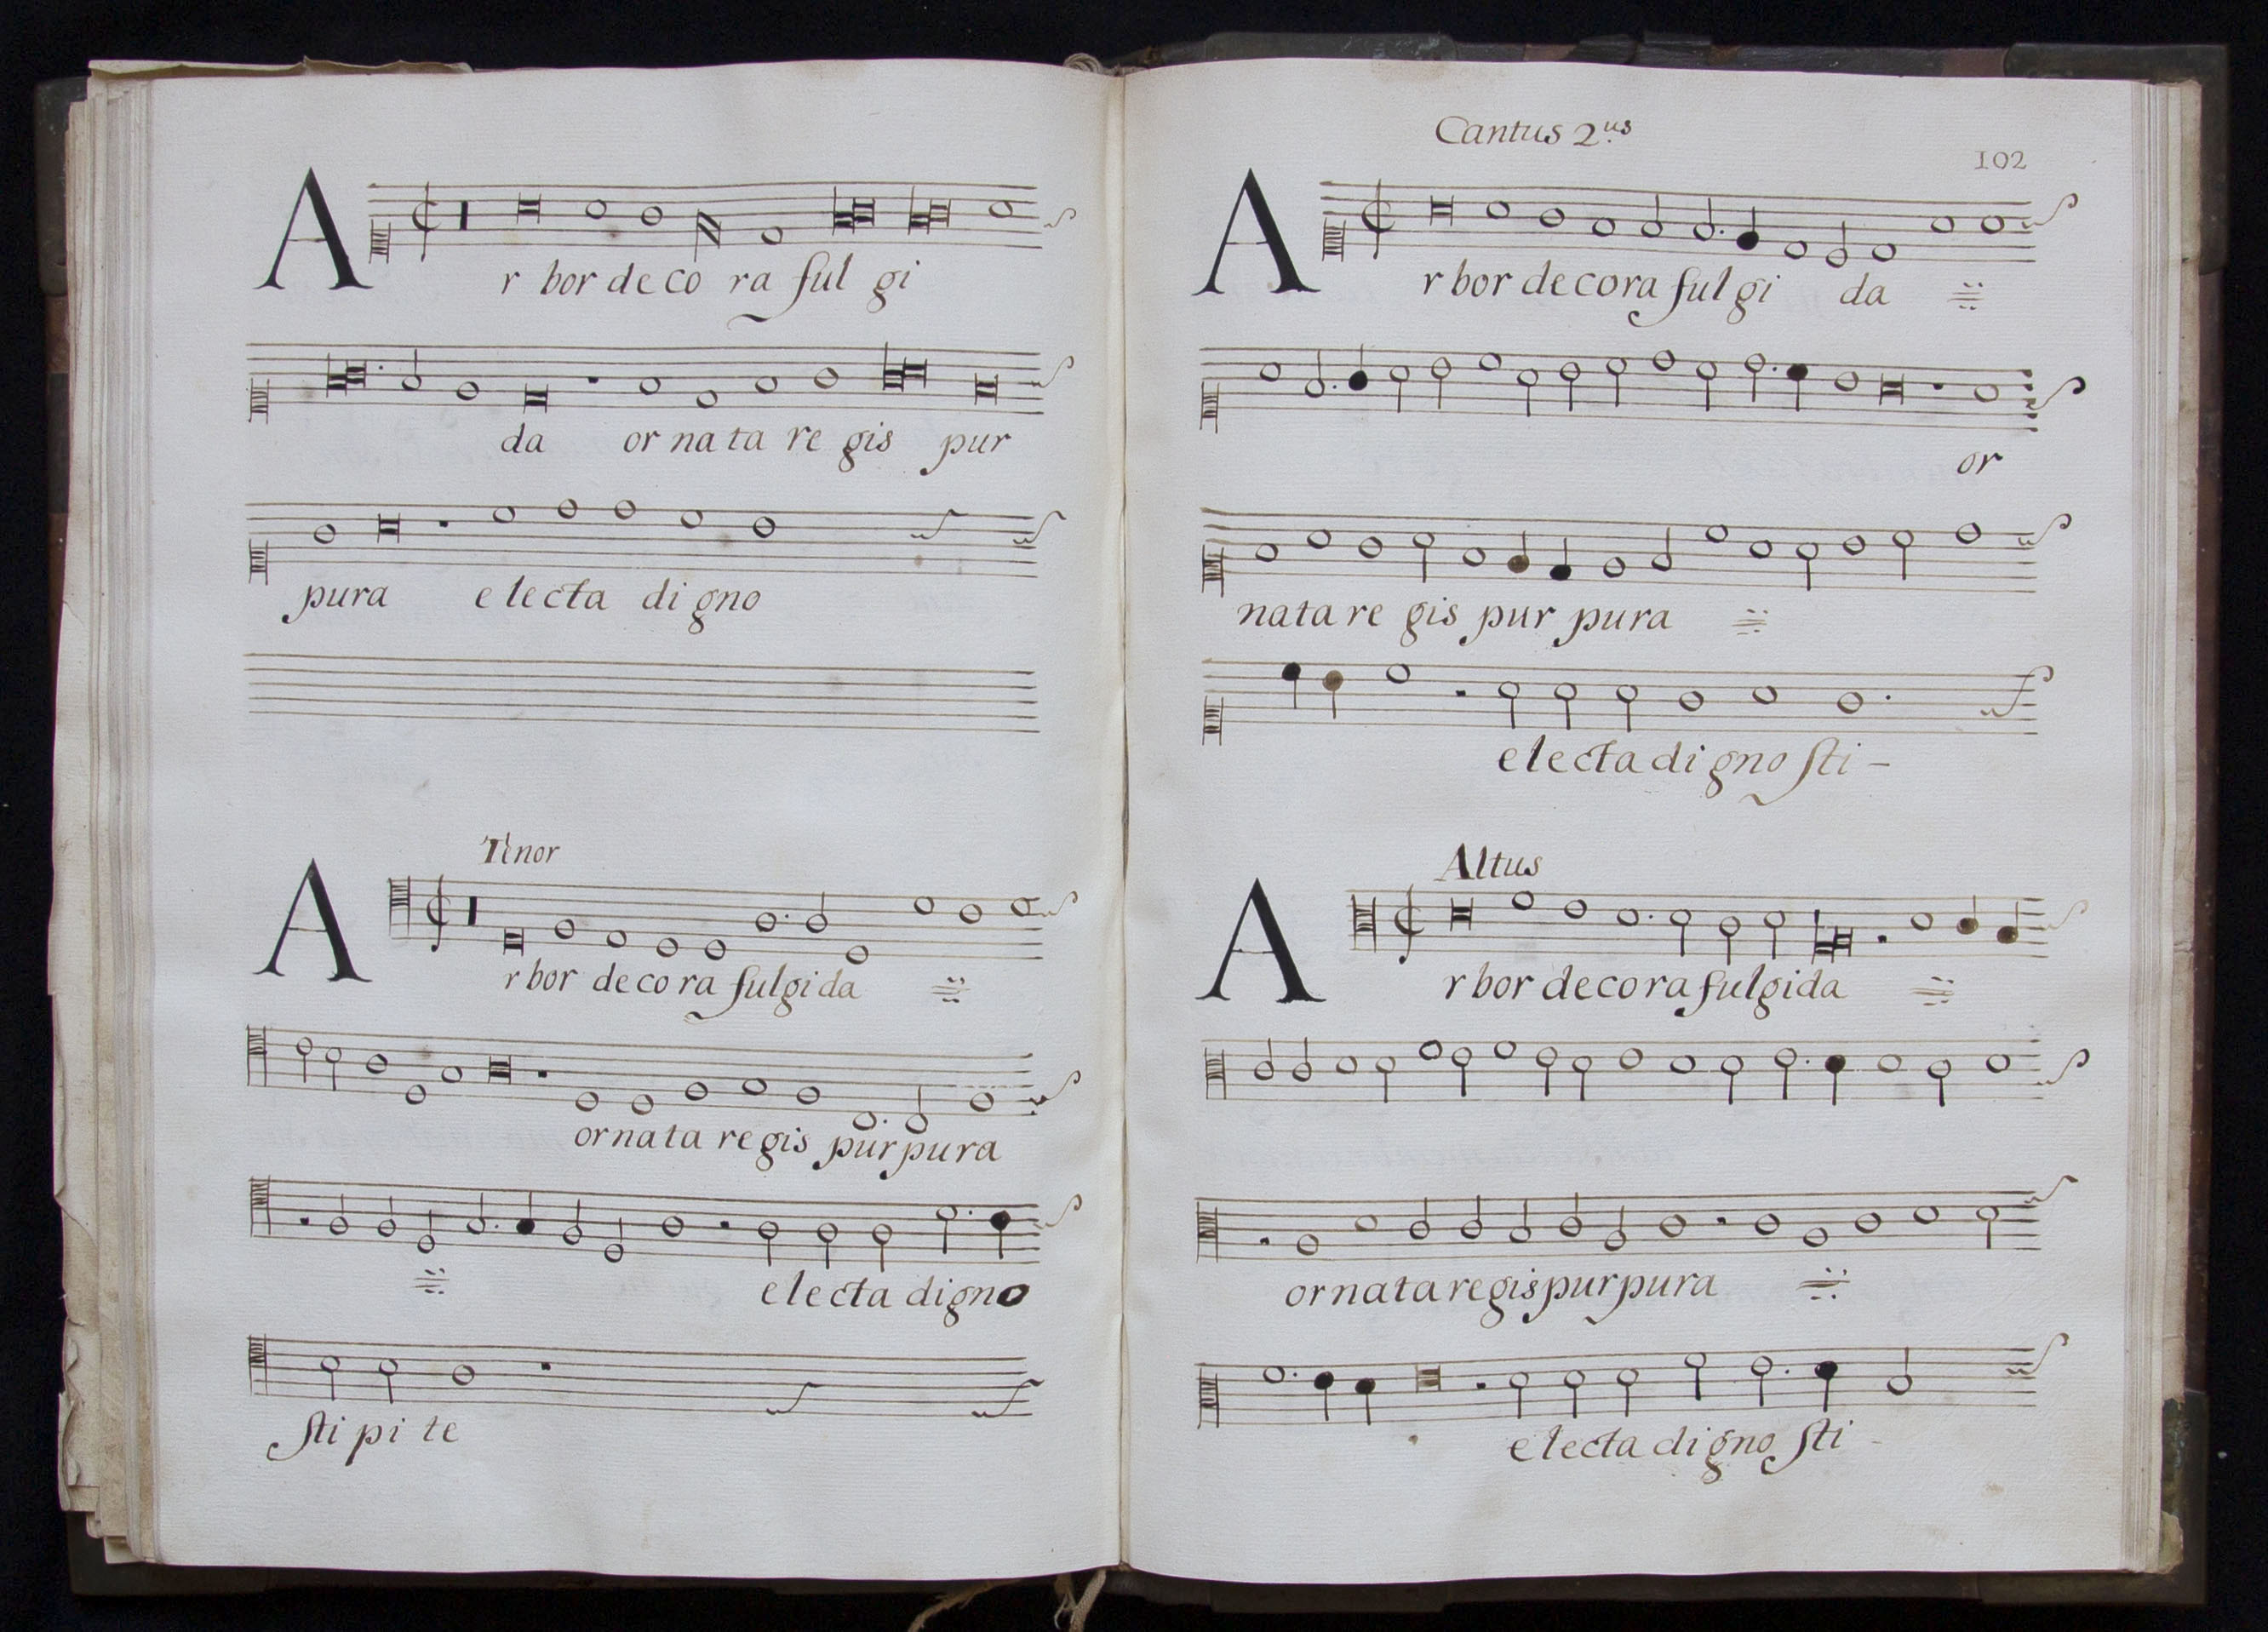 Arbor decora fulgi
da ornata regis pur
pura electa digno
Tenor
Arbor decora fulgida
ornata regis purpura
electa digno
stipite
Cantus 2.us
102
Arbor decora fulgida
or
nata regis purpura
electa digno sti-
Altus
Arbor decora fulgida
ornata regis purpura
electa digno sti-